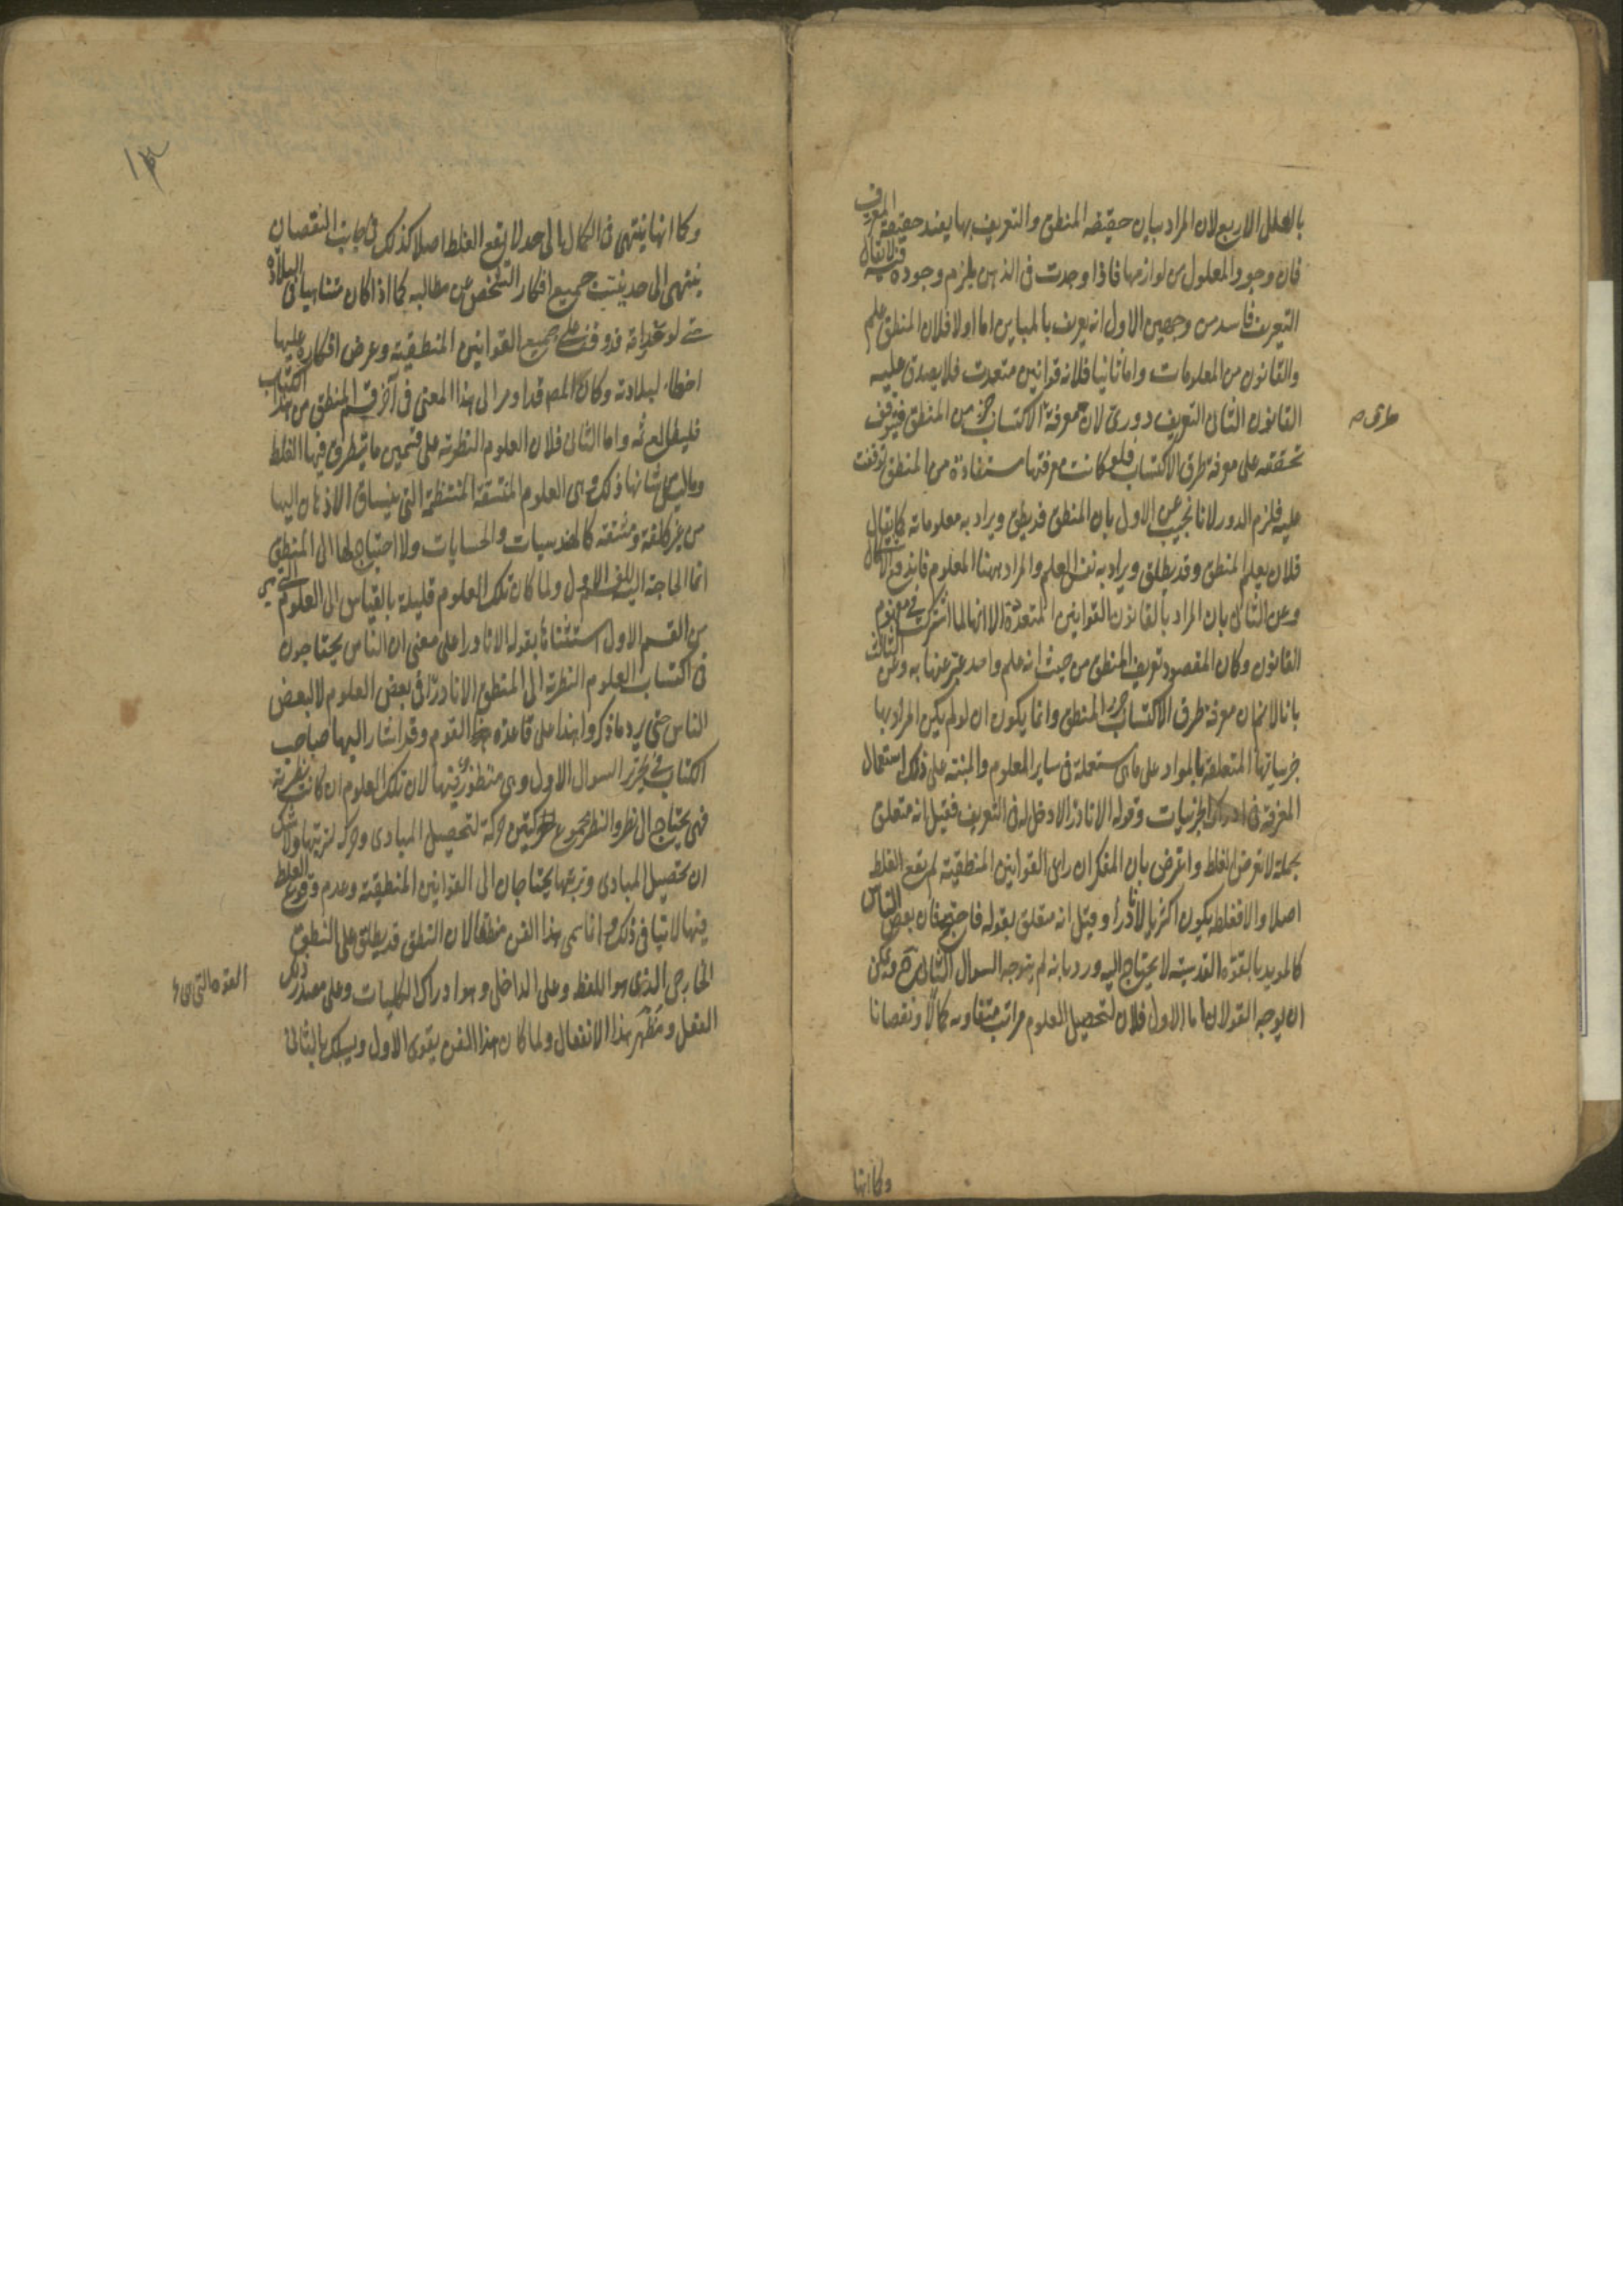 بالعلل الاربع لان المراد بيان حقيقة المنطق والتعريف بها يفيد حقيقة المعرف
فان وجود المعلول من لوازمها فاذا وجدت فى الذهن يلزم وجوده فيه لا يقال
التعريف فاسد من وجهين الاول انه يعرف بالمباين اما اولا فلان المنطق علم
والقانون من المعلومات واما ثانيا فلانه قوانين متعددت فلا يصدق عليه
القانون الثانى التعريف دورى لان معرفة الاكتساب جز من المنطق فيتوقف
طرق صح
تحققه على معرفة طرق الاكتساب فلو كانت معرفتها مستفادة من المنطق توقفت
عليه فلزم الدور لانا نجيب عن الاول بان المنطق قد يطلق ويراد به معلوماته كما يقال
فلان يعلم المنطق وقد يطلق ويراد به نفس العلم والمراد ههنا المعلوم فاندفع الاشكال
وعن الثانى بان المراد بالقانون القوانين المتعددة الا انها لما اشترك فى مفهوم
القانون وكان المقصود تعريف المنطق من حيث انه علم واحد عبر عنها به وعن الثالث
بانا لا نم ان معرفة طرق الاكتساب جزء المنطق وانما يكون ان لو لم يكن المراد بها
جزيياتها المتعلقة بالمواد على ماى مستعملة فى ساير العلوم والمبنه على ذلك استعمال
المعرفة فى ادراك الجزييات وقوله الا نادرا لا دخل له فى التعريف فقيل انه متعلق
بجملة لا تعرض الغلط واعترض بان المفكر ان راى القوانين المنطقية لم يقع الغلط
اصلا والا فغلطه يكون اكثريا لا نادرا وقيل انه متعلق بقوله فاحتيج فان بعض الناس
كالمويد بالقوة القدسية لا يحتاج اليه ورد بانه لم يتوجه السوال الثانى ح ويمكن
ان يوجه القولان اما الاول فلان لتحصيل العلوم مراتب متفاوته كمالا ونقصانا
وكما انها
١٣
وكما انها ينتهى فى الكمال الى حد لا يقع الغلط اصلا كذلك فى جانب النقصان
ينتهى الى حد يغيب جميع افكار الشخص عن مطالبه كما اذا كان متناهيا فى البلادة
حتى لو فرض انه قد وقف على جميع القوانين المنطقية وعرض افكاره عليها
اخطا لبلادته وكان المص قد اومر الى هذا المعنى فى آخر قسم المنطق من هذا الكتاب
فليطالع ثمه واما الثانى فلان العلوم النظرية على قسمين ما يتطرق فيها الغلط
وما ليس من شانها ذلك وهى العلوم المتسقة المنتظمة التى ينساق الاذهان اليها
من غير كلفة ومشقة كالهندسيات والحسابيات ولا احتياج لها الى المنطق
انما الحاجة اليه للقسم الاول ولما كان تلك العلوم قليلة بالقياس الى العلوم التى هى
من القسم الاول استثنا ها بقوله الا نادرا على معنى ان الناس يحتاجون
فى اكتساب العلوم النظرية الى المنطق الا نادرا فى بعض العلوم لا لبعض
الناس حتى يرد ما ذكروا هذا على قاعدة القوم وقد اشار اليها صاحب
الكتاب فى تحرير السوال الاول وهى منظور فيها لان تلك العلوم ان كانت نظرية
فهى يحتاج الى نظر والنظر مجموع حركتين حركة لتحصيل المبادى وحركه لترتيبها ولا شك
ان تحصيل المبادى وترتيبها يحتاجان الى القوانين المنطقية وعدم وقوع الغلط
فيها لا ينافى ذلك وانما سمى هذا الفن منطقا لان النطق قد يطلق على النطق
الخارجى الذى هو اللفظ وعلى الداخلى وهو ادراك الكليات وعلى مصدر ذلك
القوة التى هى
الفعل ومظهر هذا الانفعال ولما كان هذا الفن يقوى الاول ويسلك بالثانى